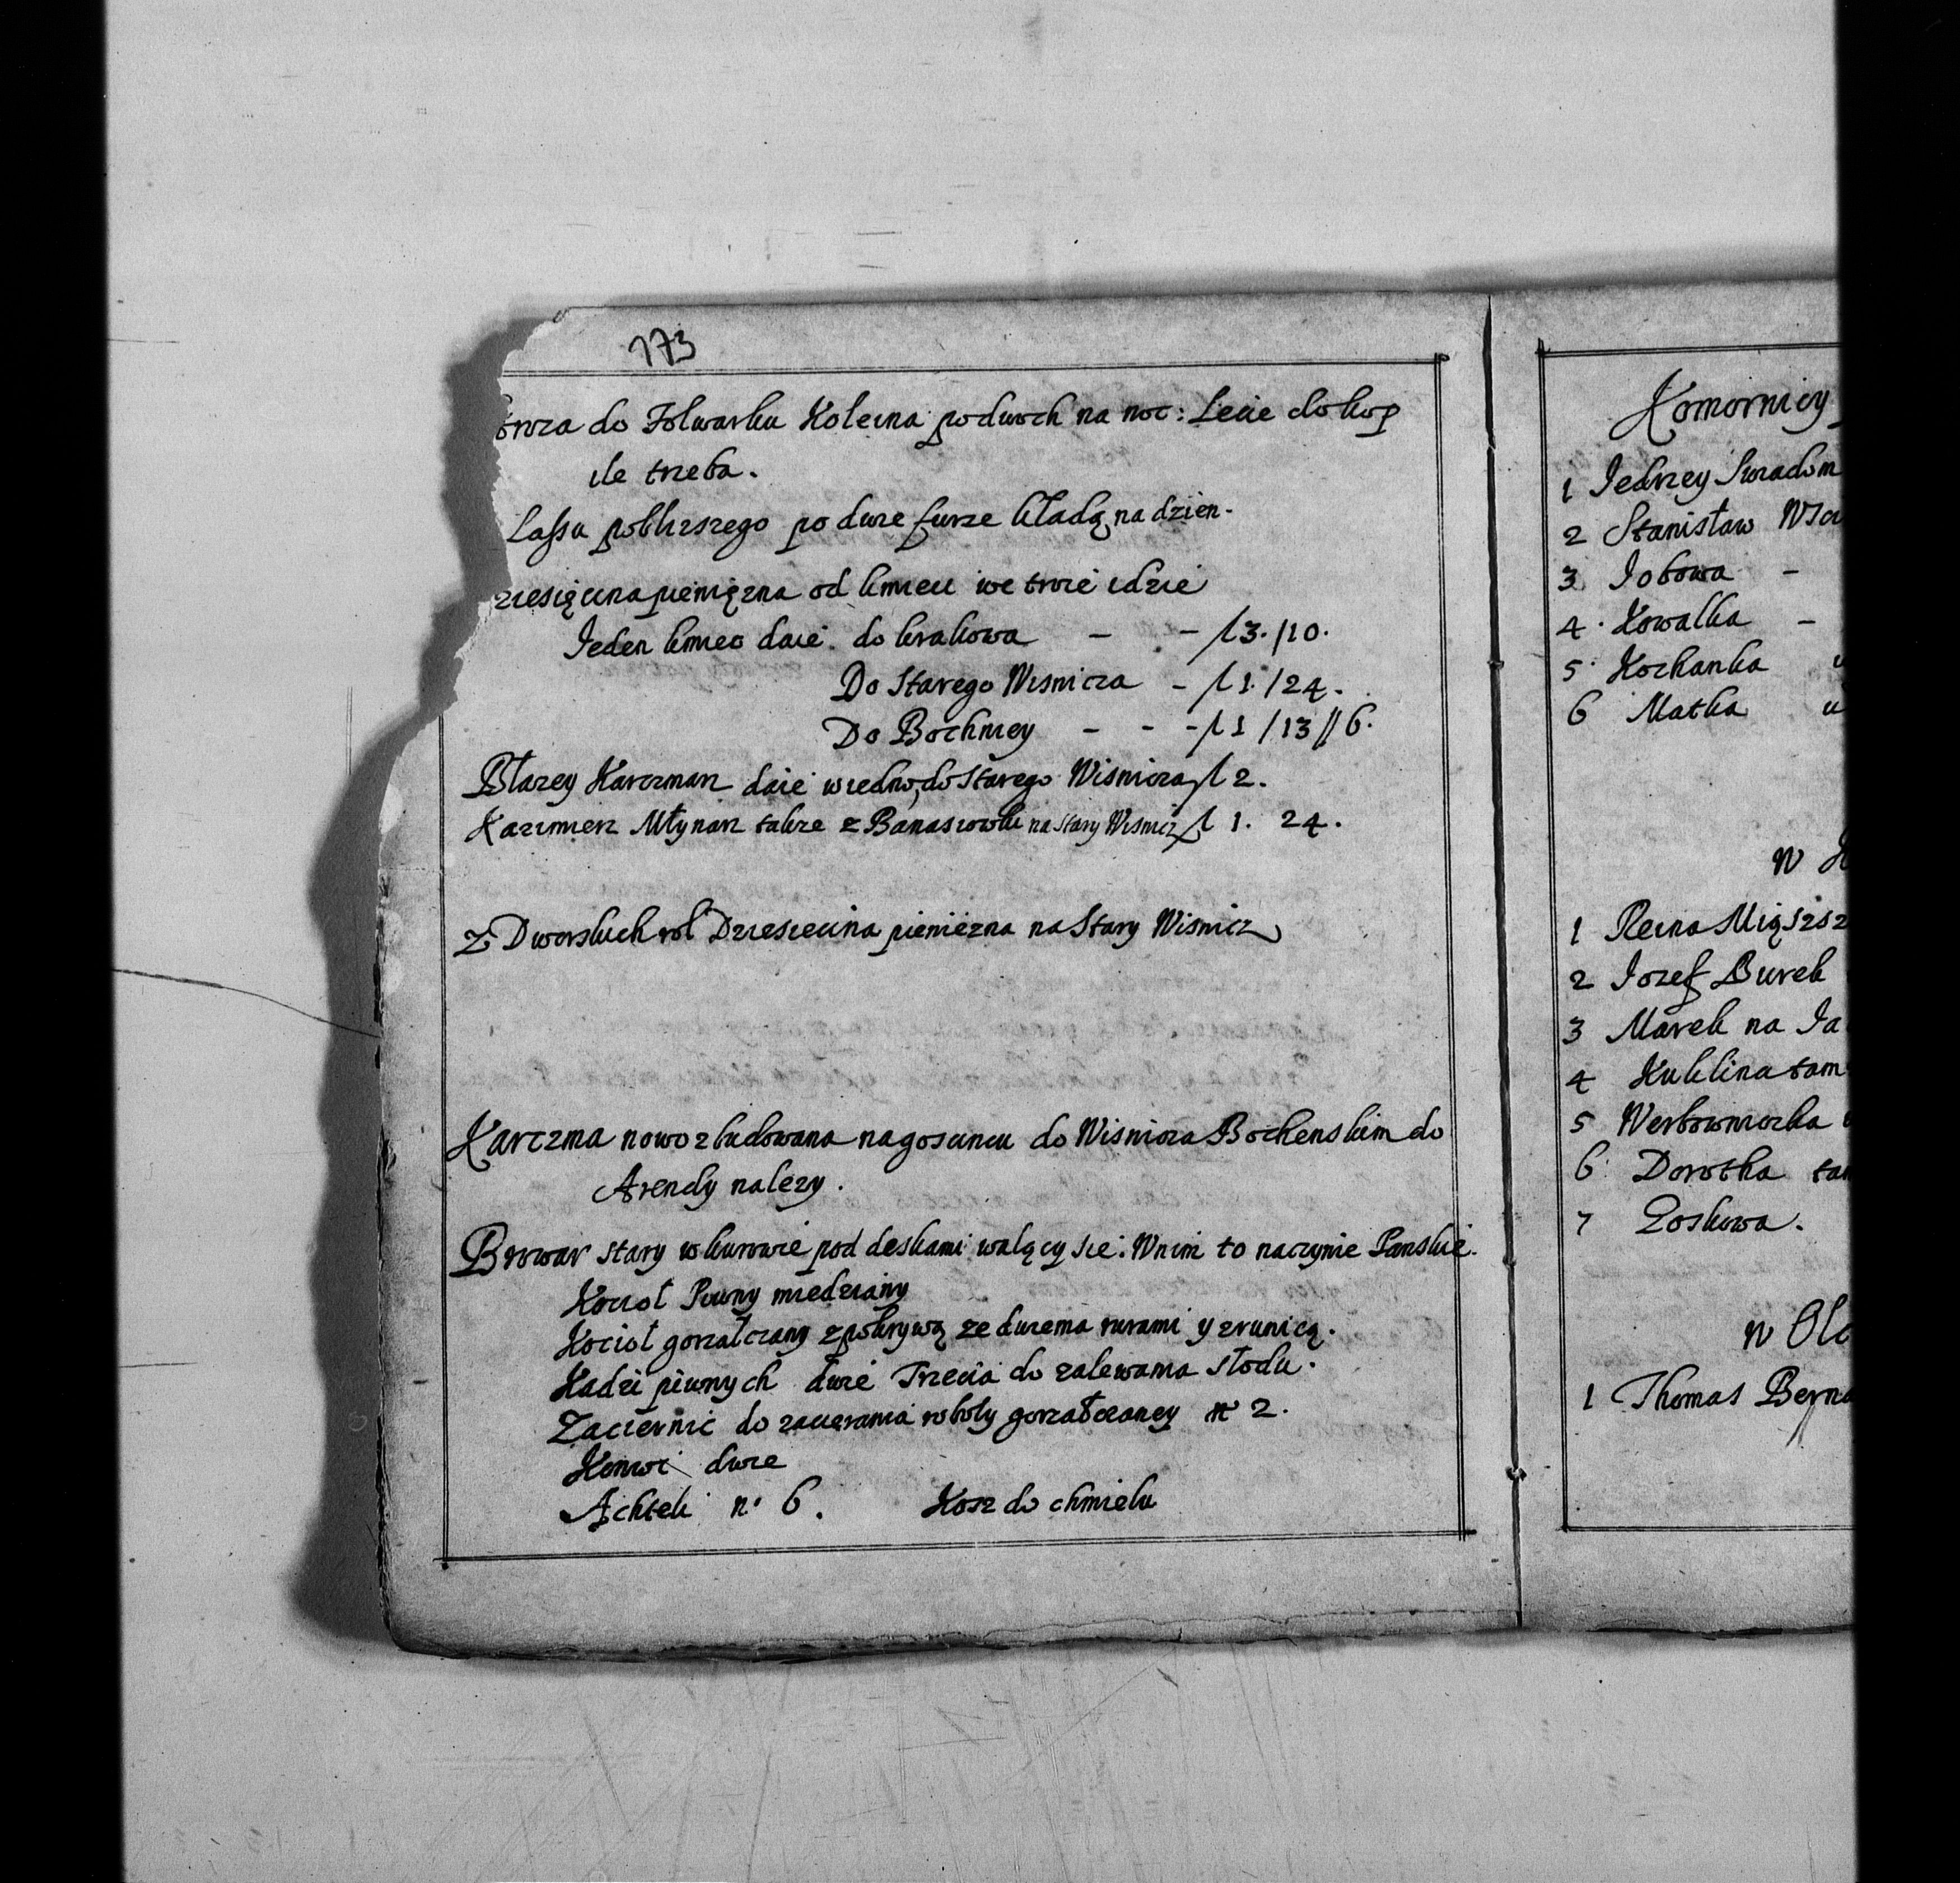 173
do Folwarku Koleina po dwoch na noc: Lecie do kop
ile trzeba.
Lassu poblizszego po dwie furze kładą na dzien.
ziesięcina pienięzna od kmieci we troie idzie
Ieden kmiec daie. do krakowa - - ł 3. / 10.
Do Starego Wisnicza - ł 1. / 24.
Do Bochniey - - - ł 1 / 13 // 6.
Błazey Karczmarz daie wiedno, do Starego Wisnicza ł 2.
Kazimierz Młynarz takze z Banasiowki na Stary Wisnicz ł 1. 24.
Z Dworskich rol Dziesiecina pieniezna na Stary Wisnicz
Karczma nowo zbudowana na goscincu do Wisnicza Bochenskim do
Arendy nalezy.
Browar stary w kurowie pod deskami walący sie: W nim to naczynie Panskie.
Kociol Piwny miedziany
Kociol gorzałczany z pokrywą ze dwiema rurami y zrunicą.
Kadzi piwnych dwie Trzecia do zalewania słodu.
Zaciernic do zacierania roboty gorzałczaney n° 2.
Konwi dwie
Achteli n° 6. Kosz do chmielu
Komornicy
1 Iedrzey Swiadom
2 Stanisław
3 Iobowa -
4. Kowalka -
5. Kochanka
6 Matka
W
1 Reina
2 Iozef Burek
3 Marek na Ia
4 Kuklina tam
5 Werbowniczka
6. Dorotka
7 Zoskowa.
W
1 Thomas Berna